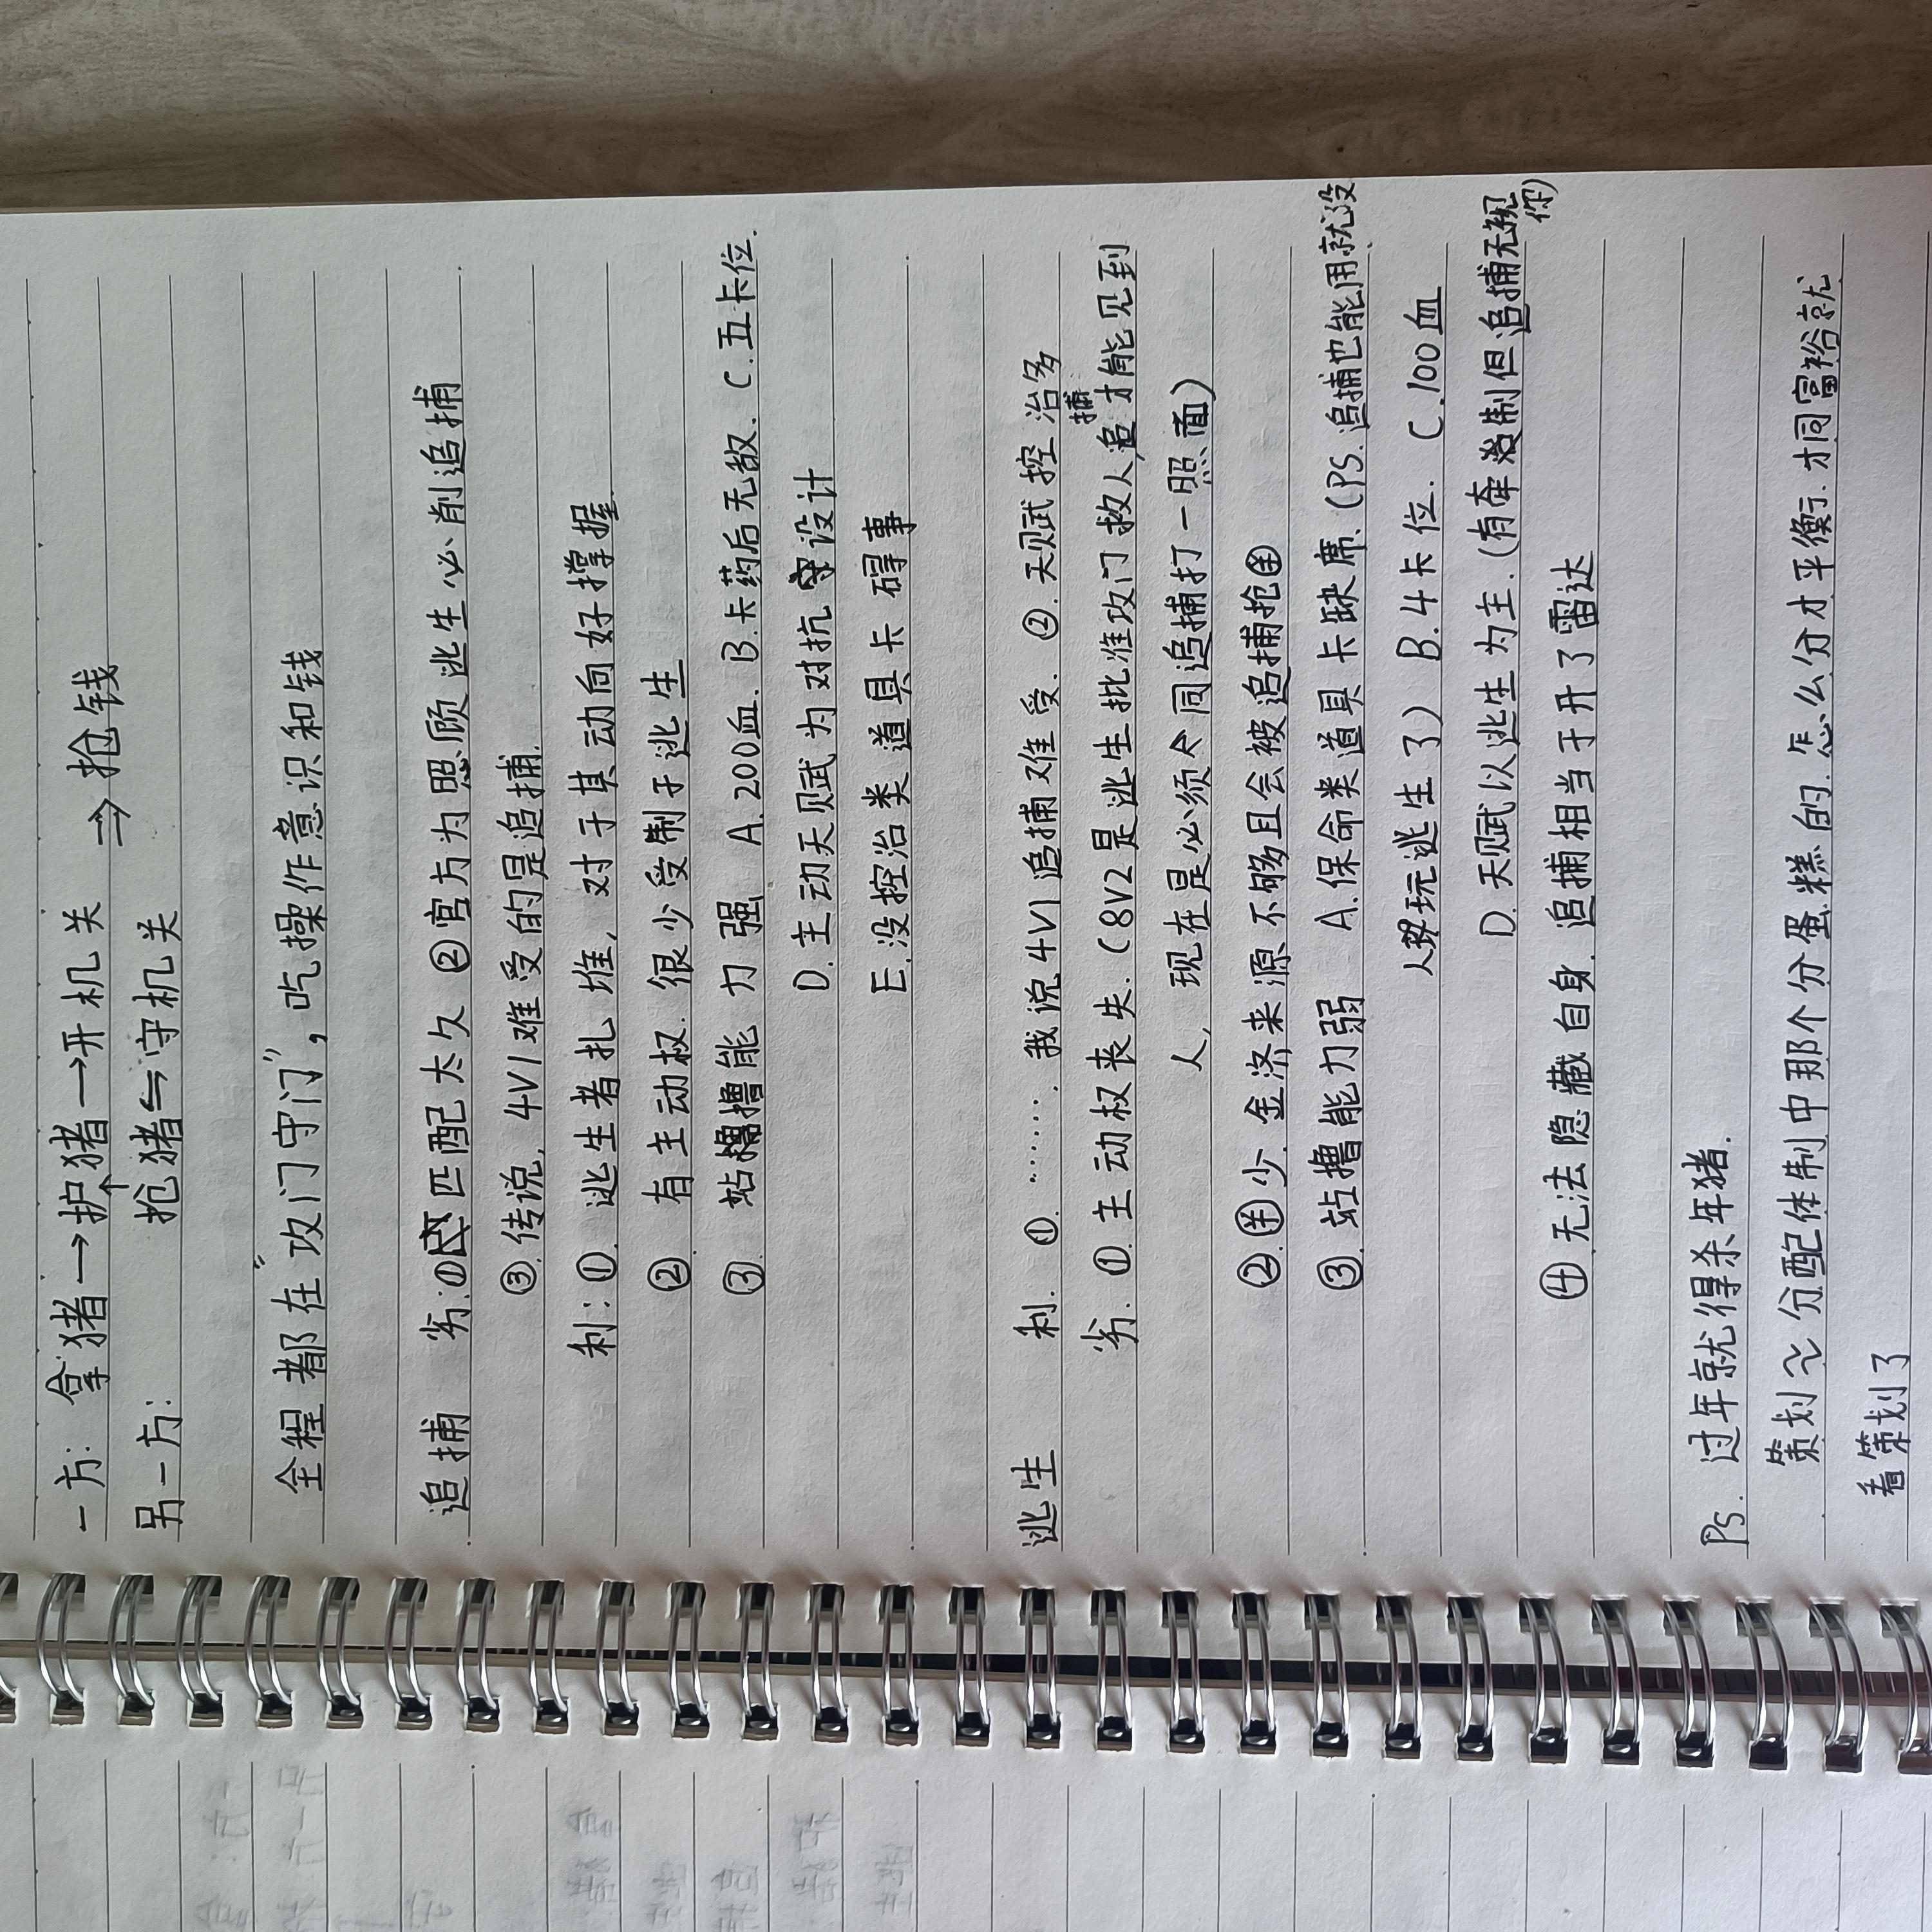 一方: 拿猪→护猪→开机关 ⇒ 抢钱
另一方: 抢猪⇋守机关
全程都在“攻门守门”,吃操作意识和钱
追捕 劣:①匹配太久 ②官方为照顾逃生必削追捕
③.传说,4V1难受的是追捕.
利:①.逃生者扎堆,对于其动向好撑握.
②.有主动权.很少受制于逃生
③.站撸能力强 A.200血. B.卡药后无敌. C.五卡位.
D.主动天赋为对抗设计
E.没控治类道具卡碍事
逃生 利.①.……. 我说4V1追捕难受. ②.天赋控治多
劣.①.主动权丧失.(8V2是逃生批准攻门救人,追捕才能见到
人,现在是必须同追捕打一照面)
②.羊少.金济来源不够且会被追捕抢羊
③.站撸能力弱 A.保命类道具卡缺席.(PS.追捕也能用就没
人玩逃生了) B.4卡位. C.100血
D.天赋以逃生为主.(有牵制但追捕无视你)
④无法隐藏自身.追捕相当于开了雷达
Ps. 过年就得杀年猪.
策划≈分配体制中那个分蛋糕的.怎么分才平衡.才同富裕就
看策划了